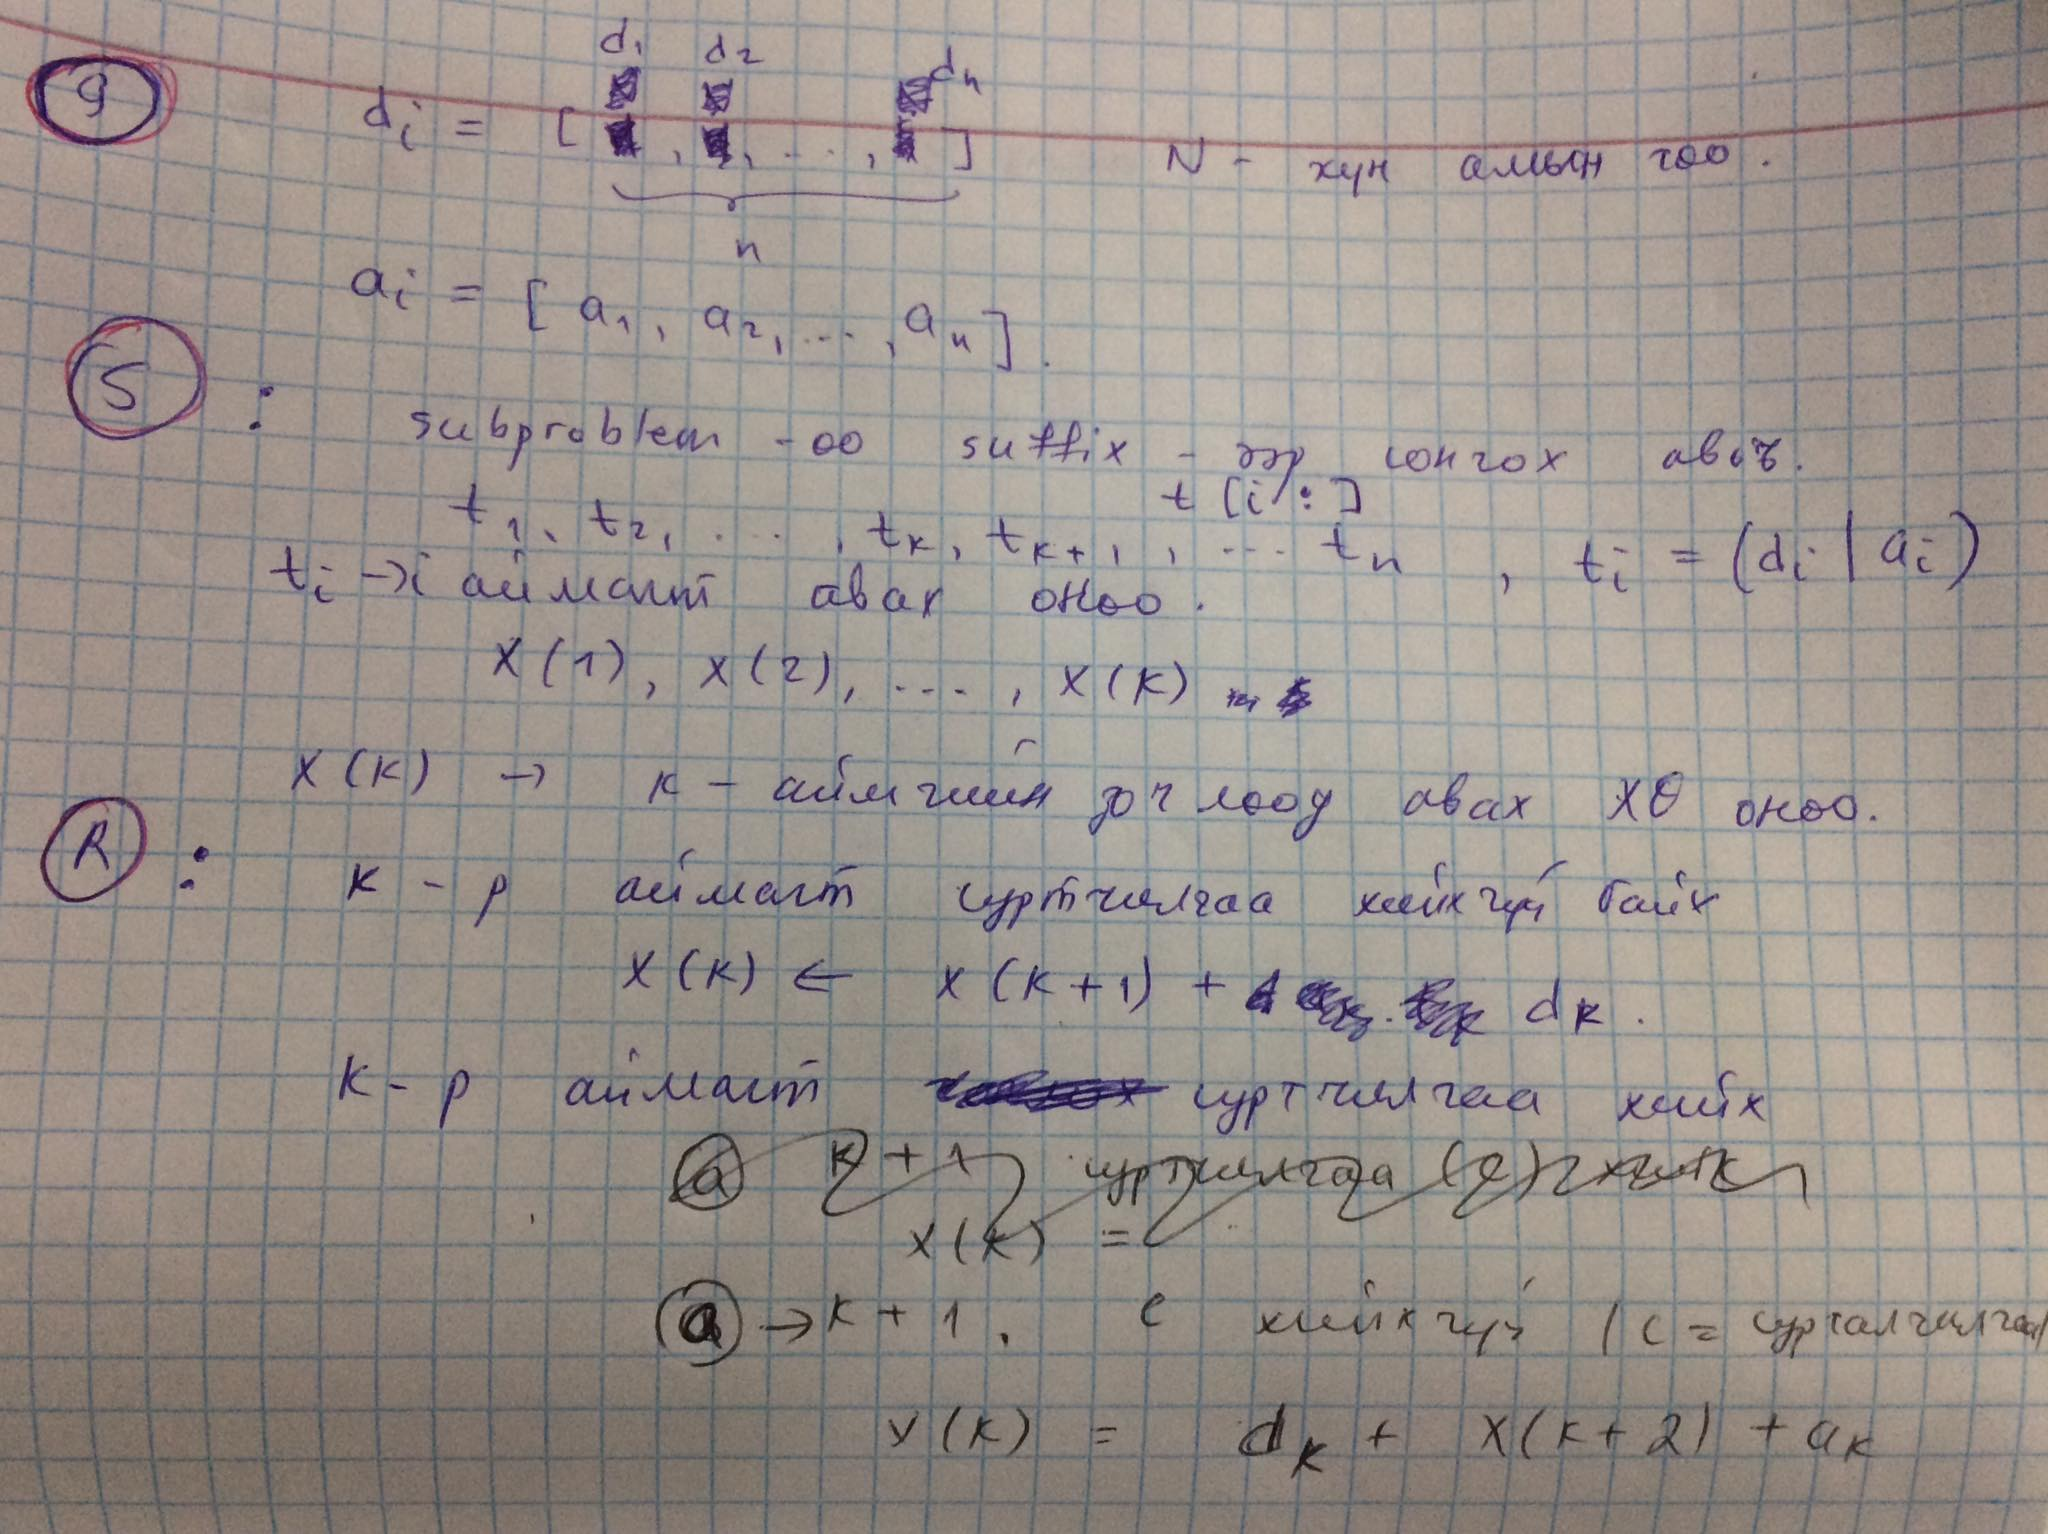 9
d₁ d₂ dₙ
dᵢ = [ , , ..., ] N - хүн амын тоо.
n
aᵢ = [a₁, a₂, ..., aₙ].
S : subproblem - оо suffix - ээр сонгох авъя.
t [i :]
t₁, t₂, ..., tₖ, tₖ₊₁, ... tₙ , tᵢ = (dᵢ | aᵢ)
tᵢ → i аймагт авах оноо.
X(1), X(2), ..., X(k)
X(k) → k - аймгийн зочлоод авах ХӨ оноо.
R : k - р аймагт сурталчилгаа хийхгүй байх
X(k) ← X(k+1) + dₖ.
k - р аймагт сурталчилгаа хийх
a k+1 сурталчилгаа (c) хийх
X(k) =
a → k+1. c хийхгүй (c = сурталчилгаа)
X(k) = dₖ + X(k+2) + aₖ